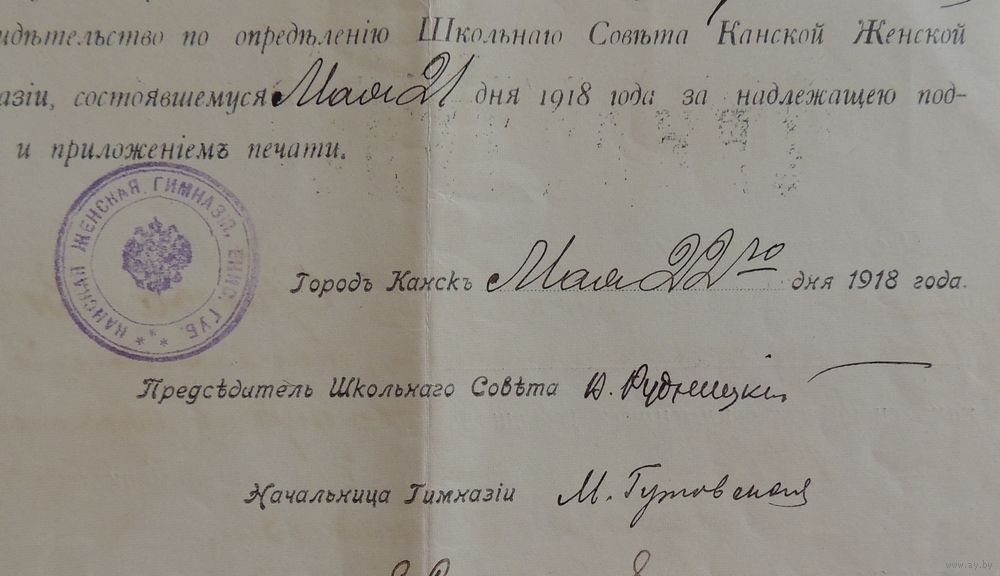 идѣтельство по опредѣленію Школьнаго Совѣта Канской Женской
азіи, состоявшемуся Мая 21 дня 1918 года за надлежащею под-
и приложеніемъ печати.
КАНСКАЯ ЖЕНСКАЯ ГИМНАЗІЯ, ЕНИС. ГУБ.
Городъ Канскъ Мая 22го дня 1918 года.
Предсѣдитель Школьнаго Совѣта Рудницкій
Начальница Гимназіи М. Гутовская
www.ay.by